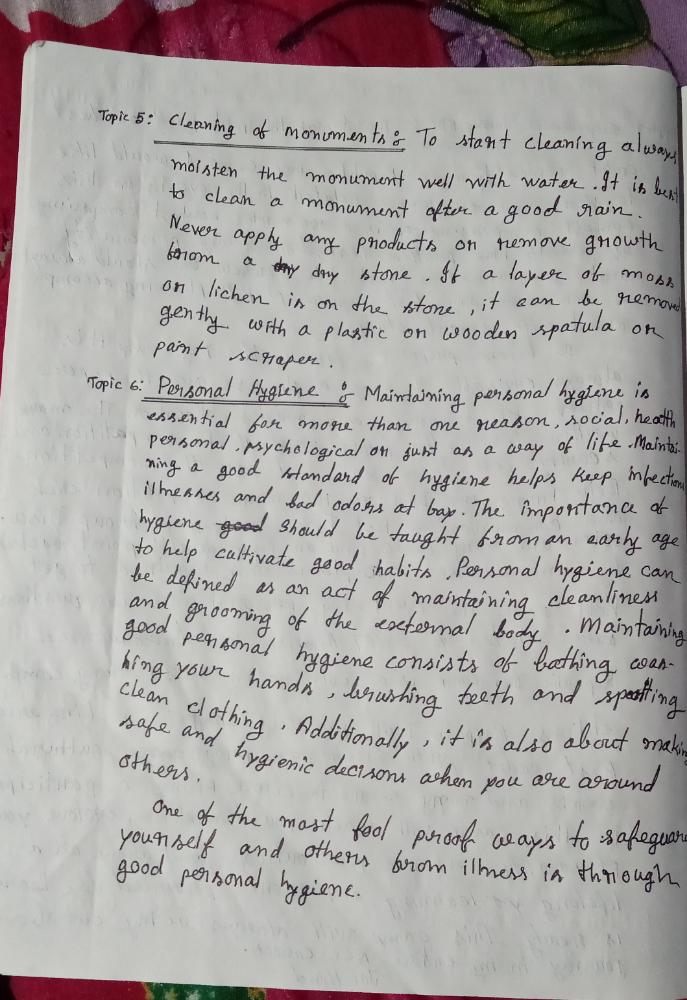 Topic 5: Cleaning of monuments : To start cleaning always
moisten the monument well with water. It is best
to clean a monument after a good rain.
Never apply any products or remove growth
from a dry stone. If a layer of moss
or lichen is on the stone, it can be removed
gently with a plastic or wooden spatula or
paint scraper.
Topic 6: Personal Hygiene : Maintaining personal hygiene is
essential for more than one reason, social, health
personal, psychological or just as a way of life. Maintai-
ning a good standard of hygiene helps keep infection
illnesses and bad odors at bay. The importance of
hygiene should be taught from an early age
to help cultivate good habits. Personal hygiene can
be defined as an act of maintaining cleanliness
and grooming of the external body. Maintaining
good personal hygiene consists of bathing was-
hing your hands, brushing teeth and sporting
clean clothing. Additionally, it is also about making
safe and hygienic decisons when you are around
others.
One of the most fool proof ways to safeguard
yourself and others from illness is through
good personal hygiene.